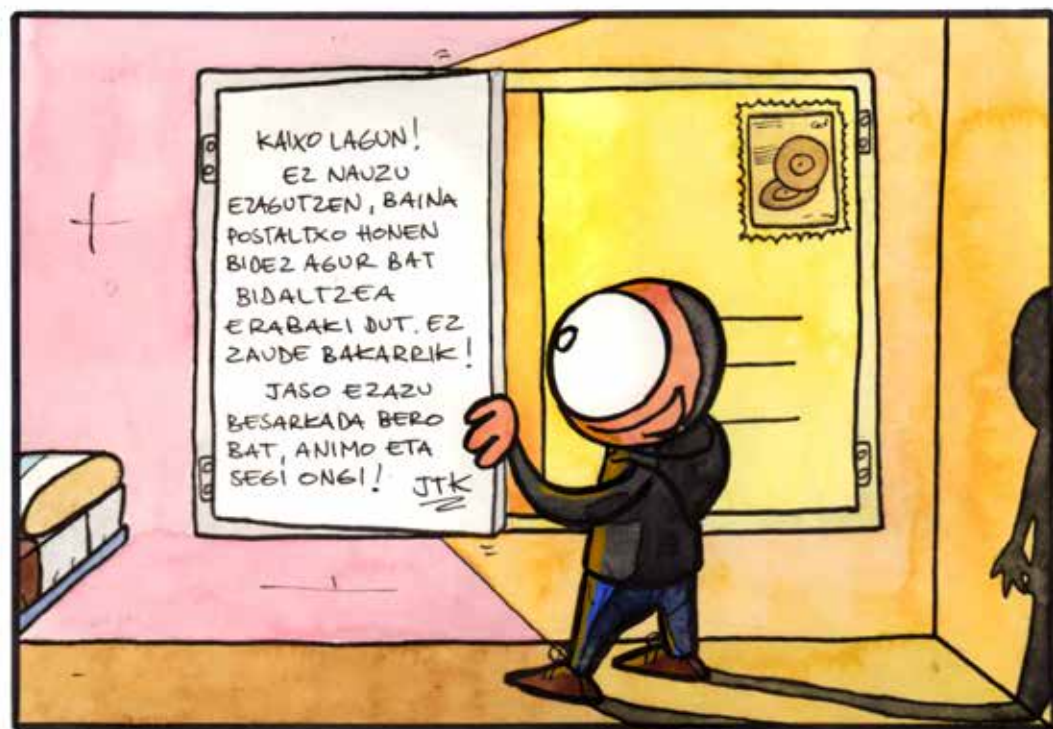 KAIXO LAGUN!
EZ NAUZU
EZAGUTZEN, BAINA
POSTALTXO HONEN
BIDEZ AGUR BAT
BIDALTZEA
ERABAKI DUT. EZ
ZAUDE BAKARRIK!
JASO EZAZU
BESARKADA BERO
BAT, ANIMO ETA
SEGI ONGI! JTK